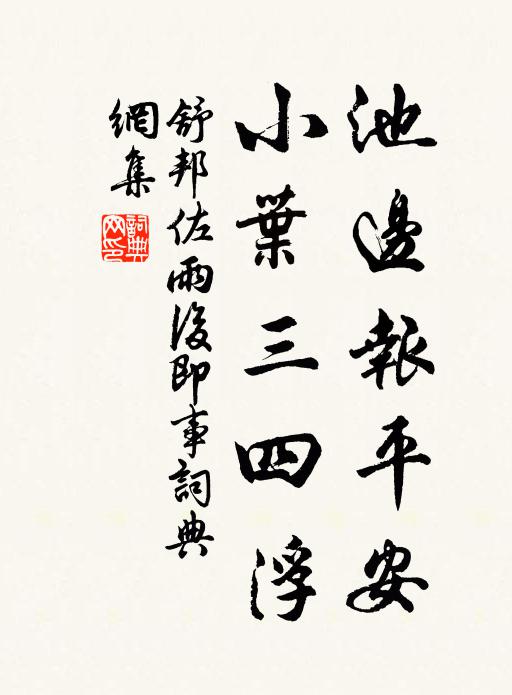 池邊報平安
小葉三四浮
舒邦佐雨後即事詞典
網集
詞典
网印